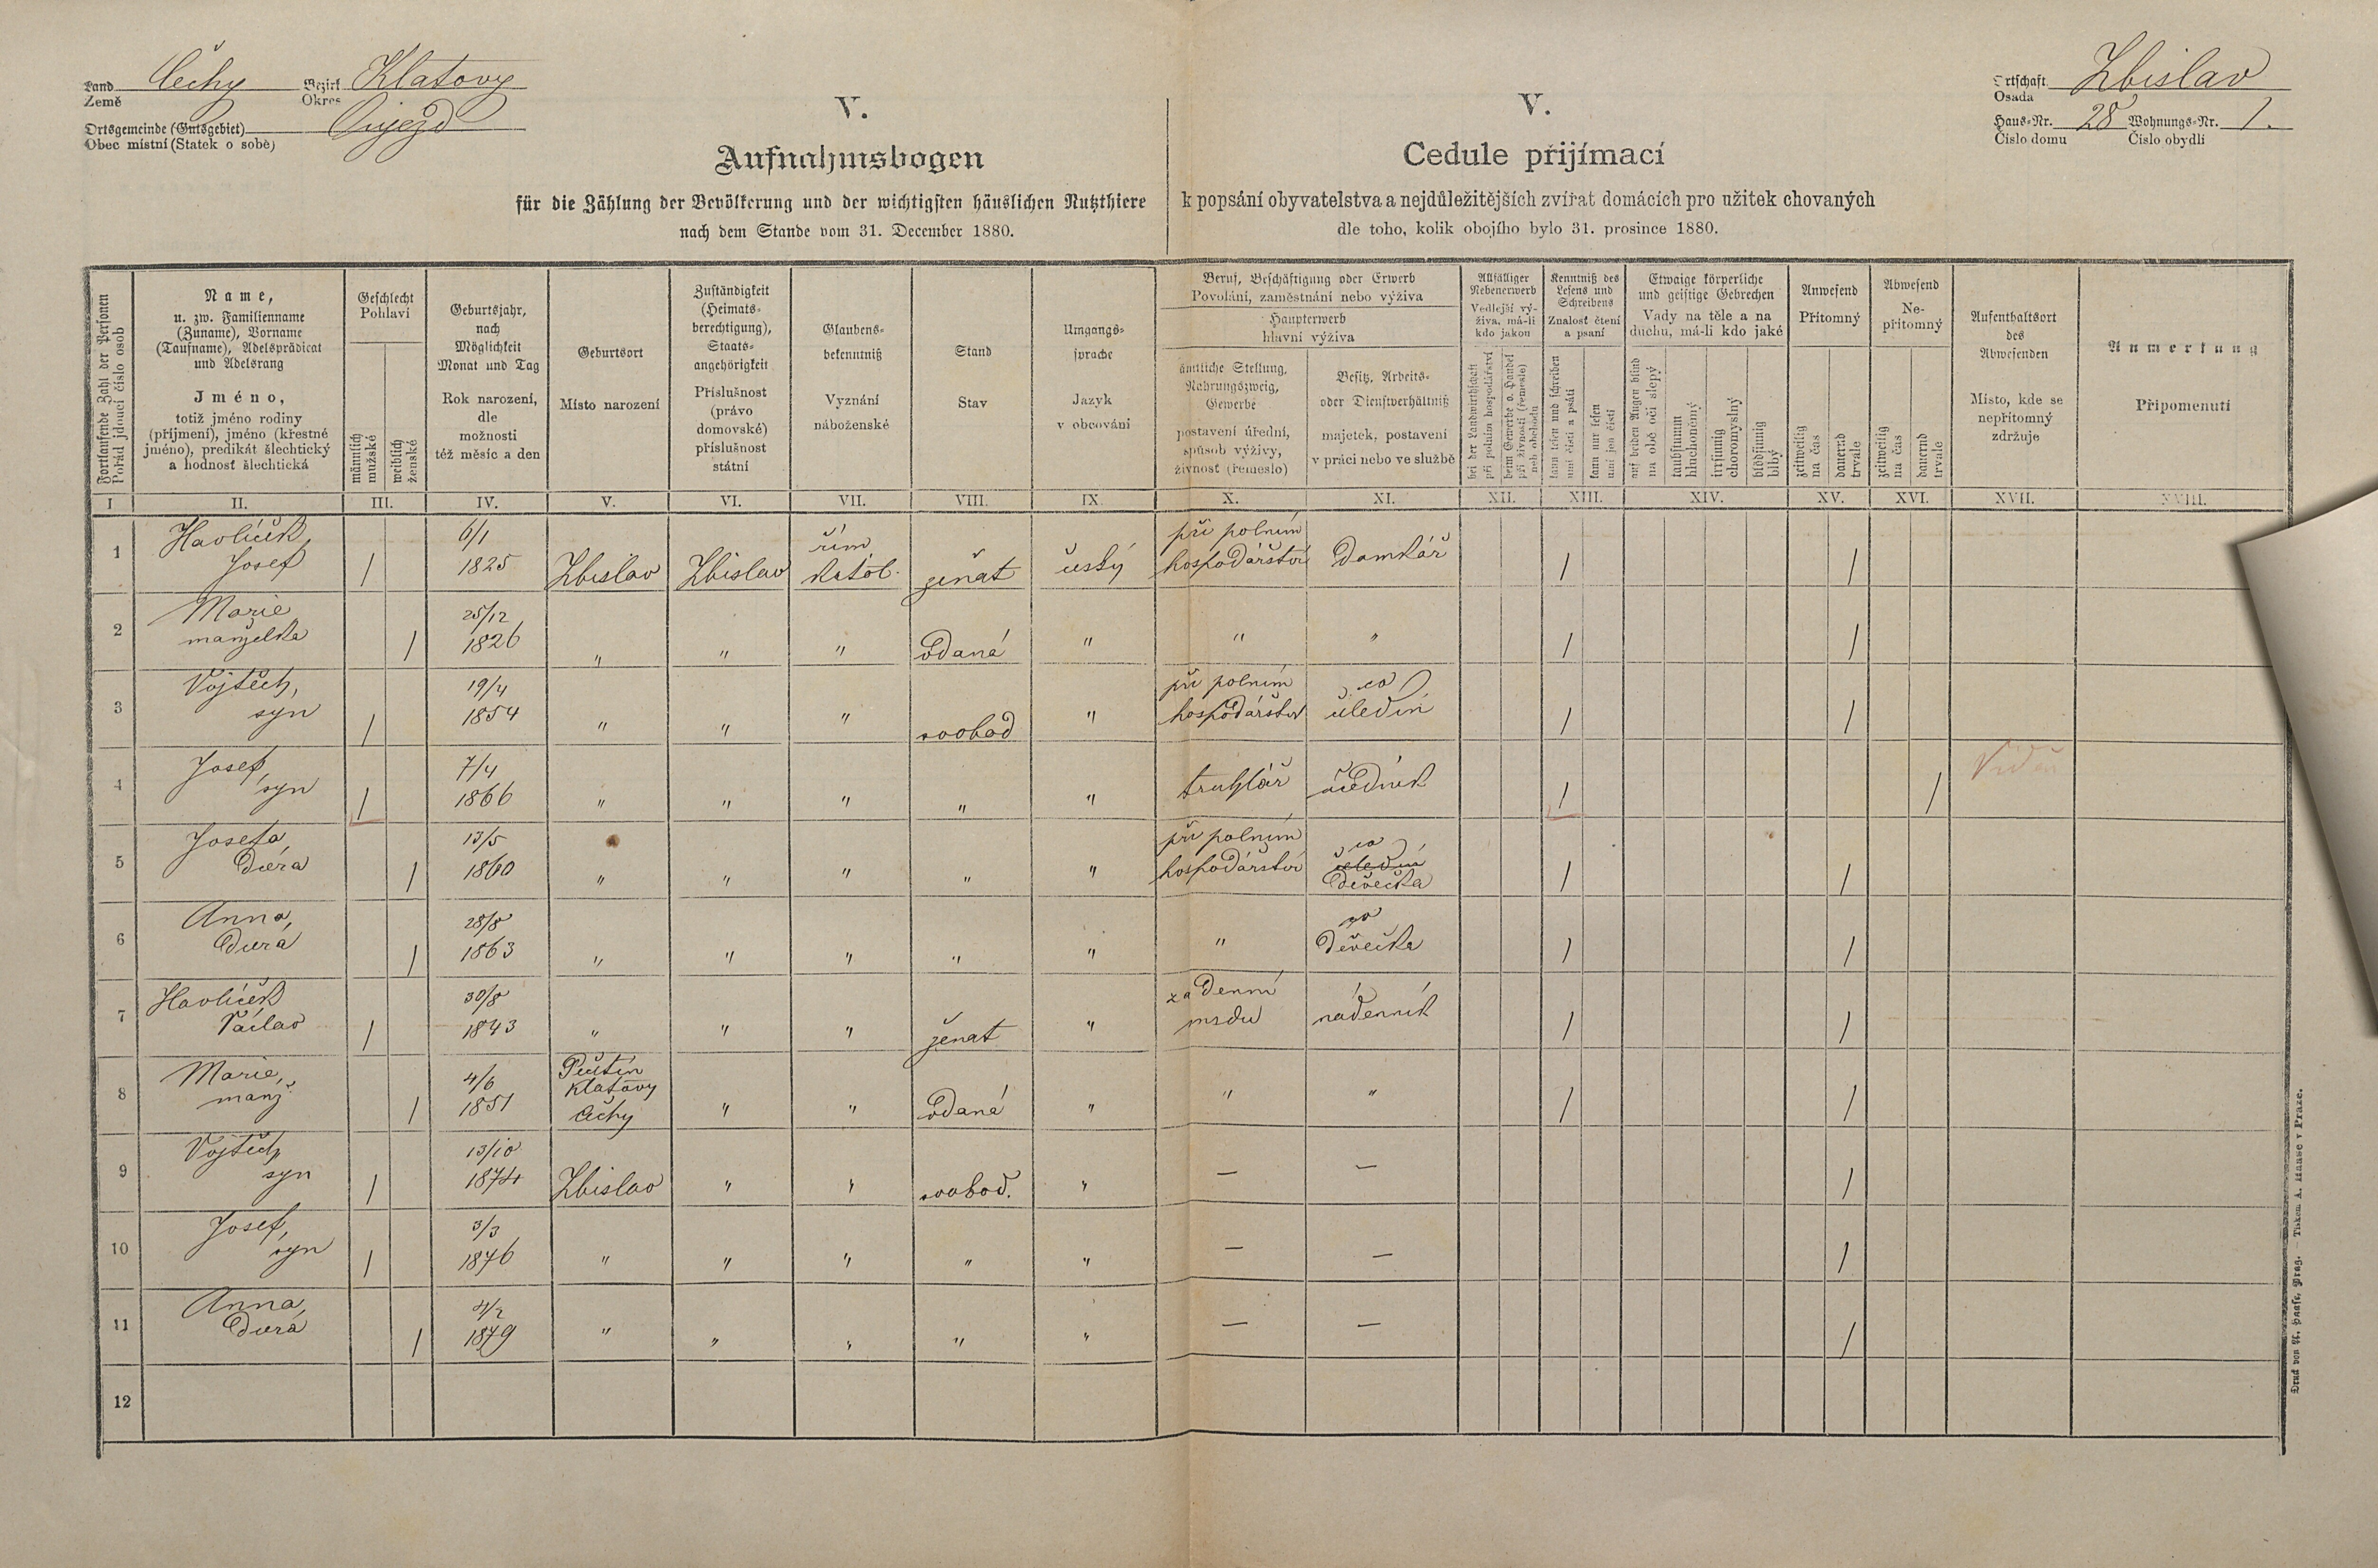 Land Čechy Bezirk Klatovy
Země Okres
Ortsgemeinde (Gutsgebiet) Oujezd
Obec místní (Statek o sobě)
Ortschaft Zbislav
Osada
Haus-Nr. 28 Wohnungs-Nr. 1.
Číslo domu Číslo obydlí
V.
Aufnahmsbogen
für die Zählung der Bevölkerung und der wichtigsten häuslichen Nutzthiere
nach dem Stande vom 31. December 1880.
V.
Cedule přijímací
k popsání obyvatelstva a nejdůležitějších zvířat domácích pro užitek chovaných
dle toho, kolik obojího bylo 31. prosince 1880.
Fortlaufende Zahl der Personen
Pořád jdoucí číslo osob
Name,
u. zw. Familienname
(Zuname), Vorname
(Taufname), Adelsprädicat
und Adelsrang
Jméno,
totiž jméno rodiny
(příjmení), jméno (křestné
jméno), predikát šlechtický
a hodnosť šlechtická
Geschlecht
Pohlaví
männlich
mužské
weiblich
ženské
Geburtsjahr,
nach
Möglichkeit
Monat und Tag
Rok narození,
dle
možnosti
též měsíc a den
Geburtsort
Místo narození
Zuständigkeit
(Heimats-
berechtigung),
Staats-
angehörigkeit
Příslušnost
(právo
domovské)
příslušnost
státní
Glaubens-
bekenntniß
Vyznání
náboženské
Stand
Stav
Umgangs-
sprache
Jazyk
v obcování
Beruf, Beschäftigung oder Erwerb
Povolání, zaměstnání nebo výživa
Haupterwerb
hlavní výživa
ämtliche Stellung,
Nahrungszweig,
Gewerbe
postavení úřední,
spůsob výživy,
živnost (řemeslo)
Besitz, Arbeits-
oder Dienstverhältniß
majetek, postavení
v práci nebo ve službě
Allfälliger
Nebenerwerb
Vedlejší vý-
živa, má-li
kdo jakou
bei der Landwirthschaft
při polním hospodářství
beim Gewerbe o. Handel
při živnosti (řemesle)
neb obchodu
Kenntniß des
Lesens und
Schreibens
Znalosť čtení
a psaní
kann lesen und schreiben
umí čísti a psáti
kann nur lesen
umí jen čísti
Etwaige körperliche
und geistige Gebrechen
Vady na těle a na
duchu, má-li kdo jaké
auf beiden Augen blind
na obě oči slepý
taubstumm
hluchoněmý
irrsinnig
choromyslný
blödsinnig
blbý
Anwesend
Přítomný
zeitweilig
na čas
dauernd
trvale
Abwesend
Ne-
přítomný
zeitweilig
na čas
dauernd
trvale
Aufenthaltsort
des
Abwesenden
Místo, kde se
nepřítomný
zdržuje
Anmerkung
Připomenutí
I II. III. IV. V. VI. VII. VIII. IX. X. XI. XII. XIII. XIV. XV. XVI. XVII. XVIII.
Havlíček 6/1 řím. při polním
1 Josef / 1825 Zbislav Zbislav katol. ženat český hospodářství Domkář / /
Marie, 25/12
2 manželka / 1826 " " " vdaná " " " / /
Vojtěch, 19/4 při polním co
3 syn / 1854 " " " svobod " hospodářství čeledín / /
Josef, 7/4
4 syn / 1866 " " " " " truhlář učedník / / Vídeň
Josefa 13/5 při polním co
5 dcera / 1860 " " " " " hospodářství děvečka / /
Anna, 28/8 co
6 dcera / 1863 " " " " " " děvečka / /
Havlíček 30/8 za denní
7 Václav / 1843 " " " ženat " mzdu nádenník / /
Marie, 4/6 Pečetín
Klatovy
8 manž. / 1851 Čechy " " vdaná " " " / /
Vojtěch 13/10
9 syn / 1874 Zbislav " " svobod. " — — /
Josef, 3/3
10 syn / 1876 " " " " " — — /
Anna, 4/2
11 dcera / 1879 " " " " " — — /
12
Druck von A. Haase, Prag. — Tiskem A. Haase v Praze.